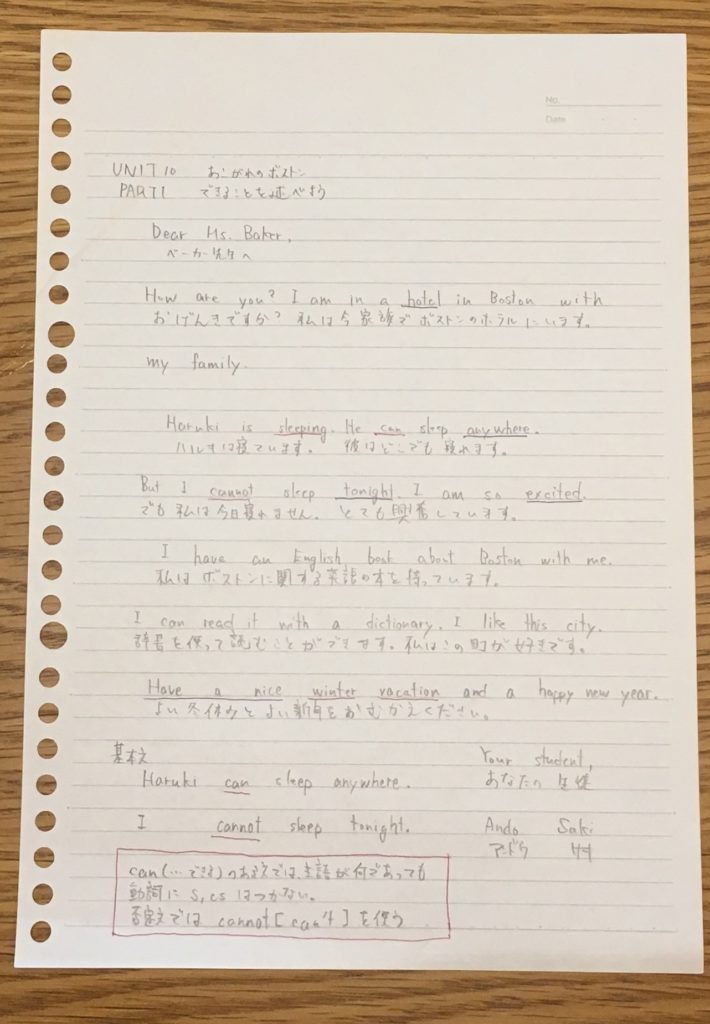 No.
Date
UNIT 10 あこがれのボストン
PART 1 できることを述べよう
Dear Ms. Baker,
ベーカー先生へ
How are you? I am in a hotel in Boston with
おげんきですか? 私は今家族でボストンのホテルにいます。
my family.
Haruki is sleeping. He can sleep anywhere.
ハルキは寝ています。 彼はどこでも寝れます。
But I cannot sleep tonight. I am so excited.
でも私は今日寝れません。とても興奮しています。
I have an English book about Boston with me.
私はボストンに関する英語の本を持っています。
I can read it with a dictionary. I like this city.
辞書を使って読むことができます。私はこの町が好きです。
Have a nice winter vacation and a happy new year.
よい冬休みとよい新年をおむかえください。
基本文 Your student,
Haruki can sleep anywhere. あなたの生徒
I cannot sleep tonight. Ando Saki
アンドウ サキ
can(…できる)のある文では、主語が何であっても
動詞に s, es はつかない。
否定文では cannot [can't] を使う